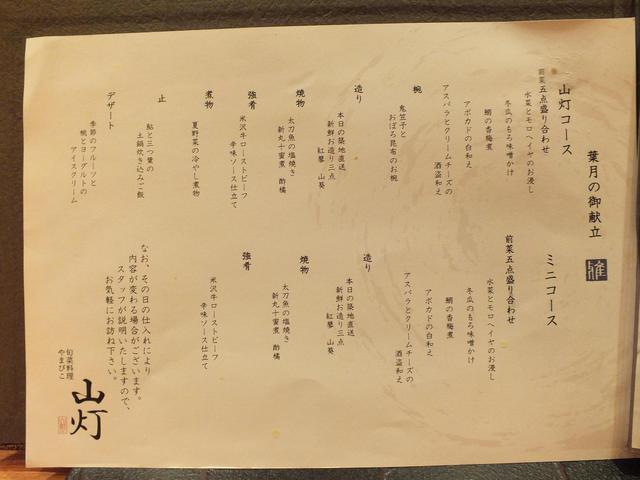 葉月の御献立
山灯コース
前菜五点盛り合わせ
水菜とモロヘイヤのお浸し
冬瓜のもろ味噌かけ
鯛の香梅煮
アボカドの白和え
アスパラとクリームチーズの
酒盗和え
椀
魚笠子と
おぼろ昆布のお椀
造り
本日の築地直送
新鮮お造り三点
紅蓼 山葵
焼物
太刀魚の塩焼き
新丸十蜜煮 酢橘
強肴
米沢牛ローストビーフ
辛味ソース仕立て
煮物
夏野菜の冷やし煮物
止
鮎と三つ葉の
土鍋炊き込みご飯
デザート
季節のフルーツと
桃とヨーグルトの
アイスクリーム
ミニコース
前菜五点盛り合わせ
水菜とモロヘイヤのお浸し
冬瓜のもろ味噌かけ
鯛の香梅煮
アボカドの白和え
アスパラとクリームチーズの
酒盗和え
造り
本日の築地直送
新鮮お造り三点
紅蓼 山葵
焼物
太刀魚の塩焼き
新丸十蜜煮 酢橘
強肴
米沢牛ローストビーフ
辛味ソース仕立て
なお、その日の仕入れにより
内容が変わる場合がございます。
スタッフが説明いたしますので、
お気軽にお訊ね下さい。
旬菜料理
やまびこ
山灯